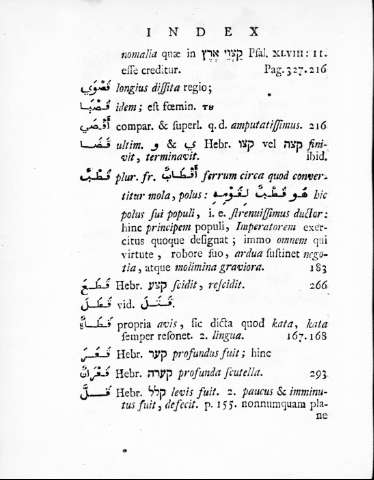 INDEX
nomalia quæ in קַצְוֵי אֶרֶץ Psal. XLVIII: 11.
esse creditur. Pag. 327. 216
قُصْوَى longius dissita regio;
idem; est fœmin.
أَقْصَى compar. & superl. q. d. amputatissimus. 216
قَصَا ultim. و & ي Hebr. קצו vel קצה fini-
vit, terminavit. ibid.
قُطْبٌ plur. fr. أَقْطَابٌ ferrum circa quod conver-
titur mola, polus: هُو قُطْبُ لِقَوْمِهِ hic
polus sui populi, i. e. strenuissimus ductor:
hinc principem populi, Imperatorem exer-
citus quoque designat; immo omnem qui
virtute, robore suo, ardua sustinet nego-
tia, atque molimina graviora. 183
قَطَعَ Hebr. קצע scidit, rescidit. 266
قَطَلَ vid. قَتَلَ.
قَطَاةٌ propria avis, sic dicta quod kata, kata
semper resonet. 2. lingua. 167. 168
قَعَرَ Hebr. קער profundus fuit; hinc
قَعْرَانٌ Hebr. קערה profunda scutella. 293
قَلَّ Hebr. קלל levis fuit. 2. paucus & imminu-
tus fuit, defecit. p. 155. nonnumquam pla-
ne